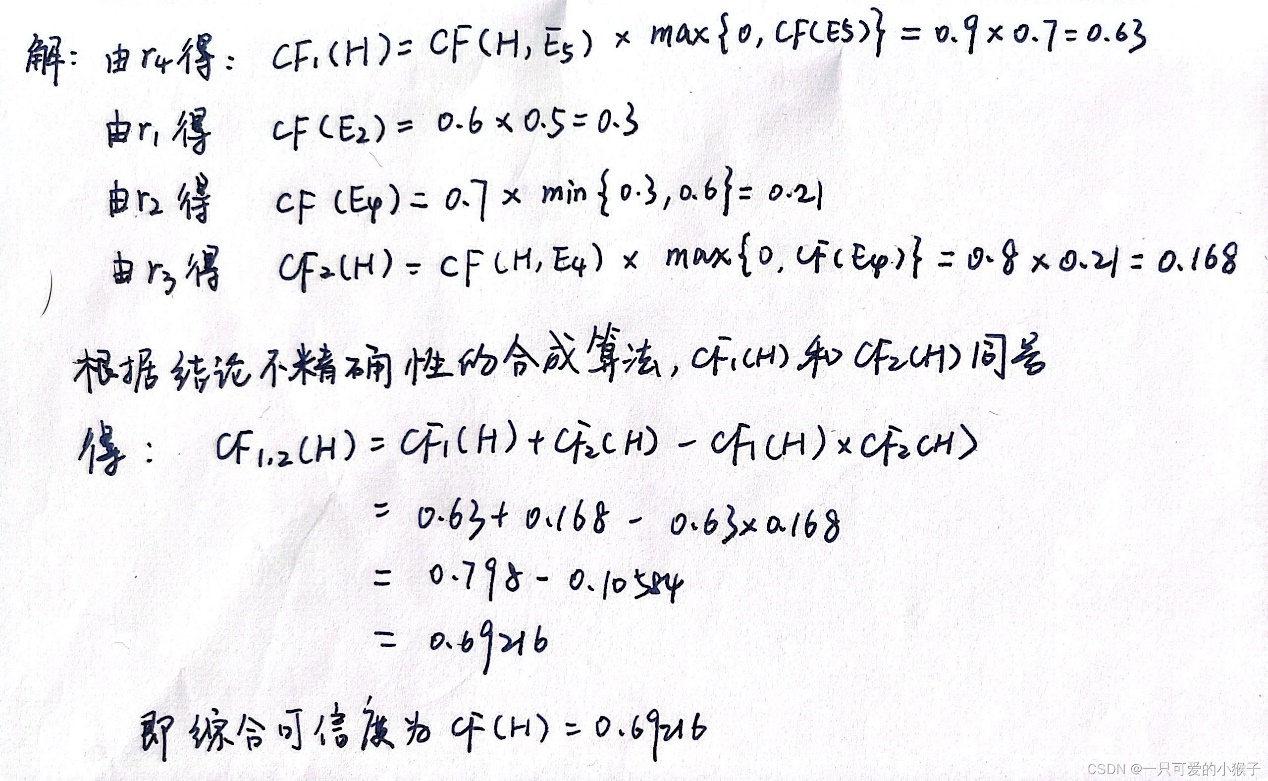 解: 由r₄得: CF₁(H) = CF(H, E₅) × max{0, CF(E5)} = 0.9 × 0.7 = 0.63
由r₁得 CF(E₂) = 0.6 × 0.5 = 0.3
由r₂得 CF(E₄) = 0.7 × min{0.3, 0.6} = 0.21
由r₃得 CF₂(H) = CF(H, E₄) × max{0, CF(E₄)} = 0.8 × 0.21 = 0.168
根据结论不精确性的合成算法, CF₁(H)和CF₂(H)同号
得: CF₁,₂(H) = CF₁(H) + CF₂(H) - CF₁(H) × CF₂(H)
= 0.63 + 0.168 - 0.63 × 0.168
= 0.798 - 0.10584
= 0.69216
即综合可信度为 CF(H) = 0.69216
CSDN @一只可爱的小猴子